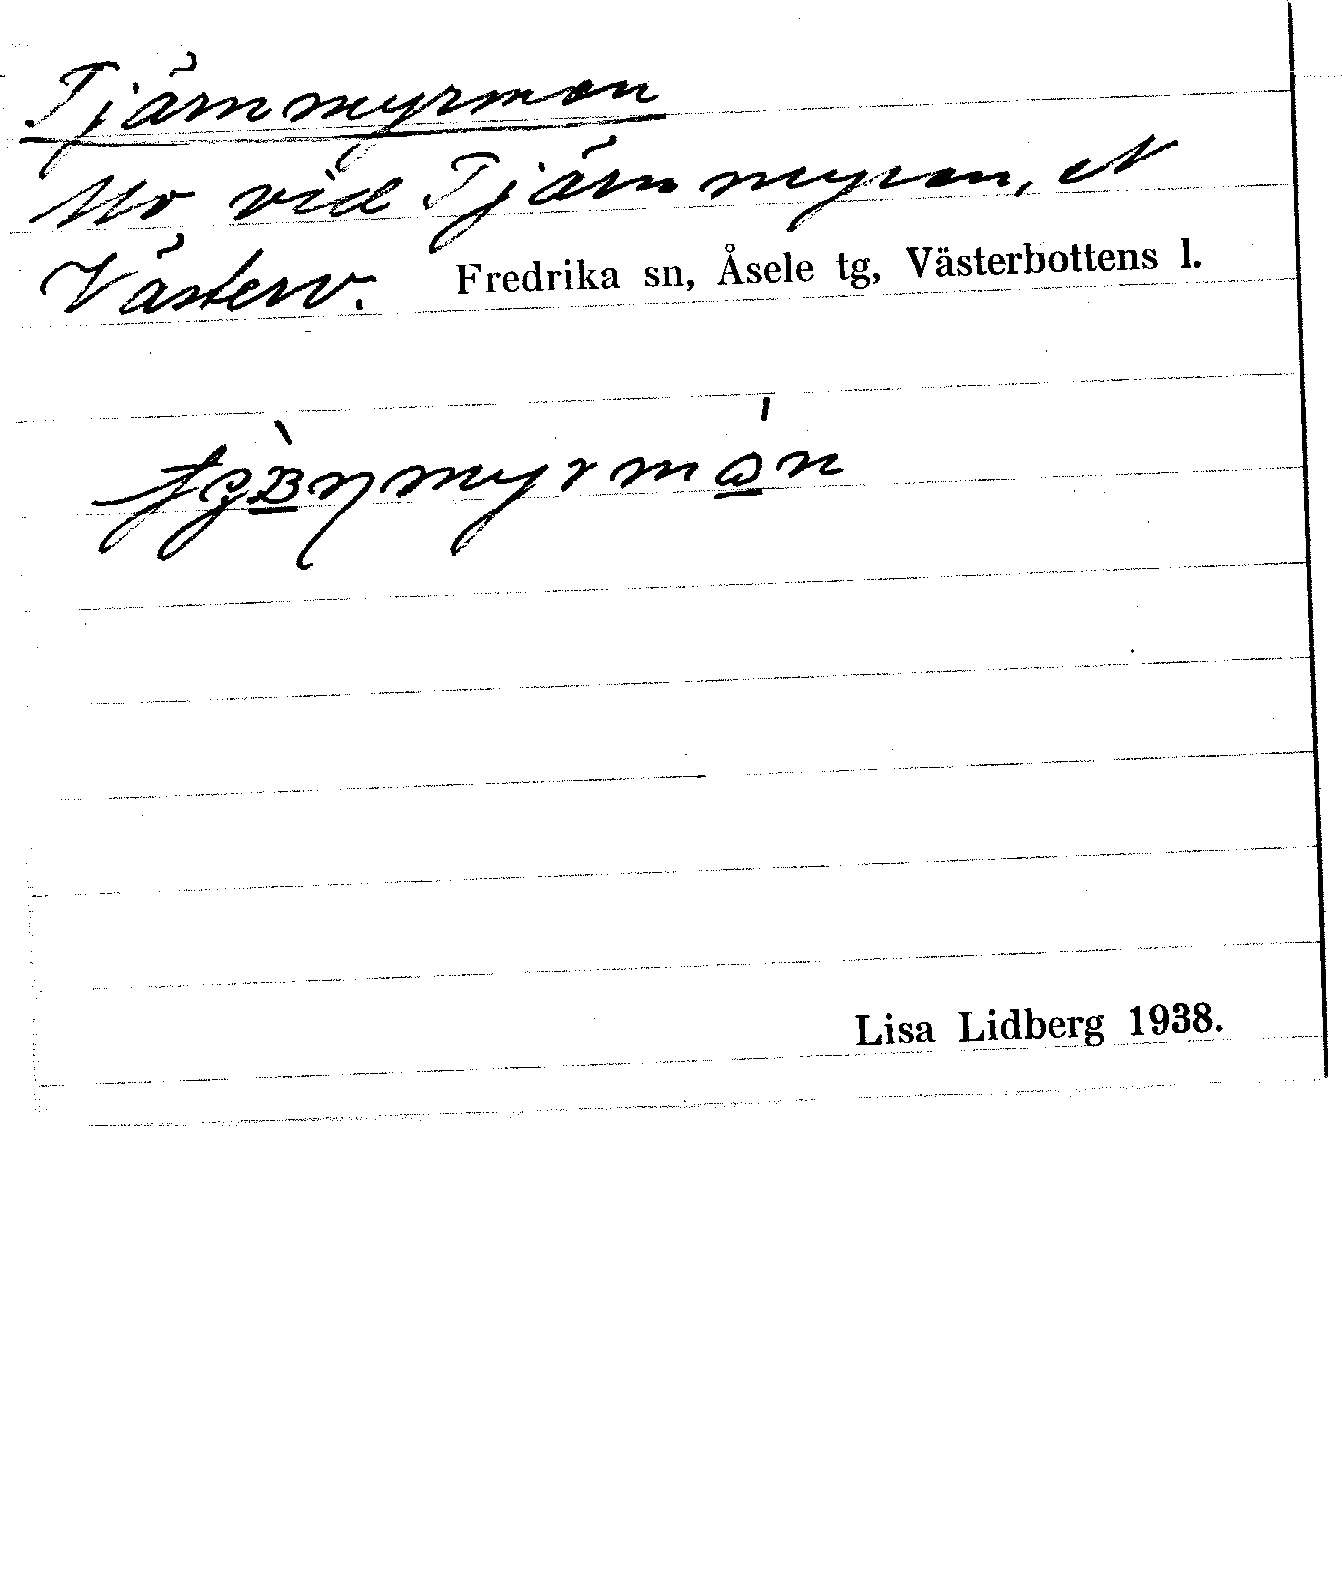 Tjärnmyrmon
Mo vid Tjärnmyran, et
Västerv. Fredrika sn, Åsele tg, Västerbottens l.
Lisa Lidberg 1938.